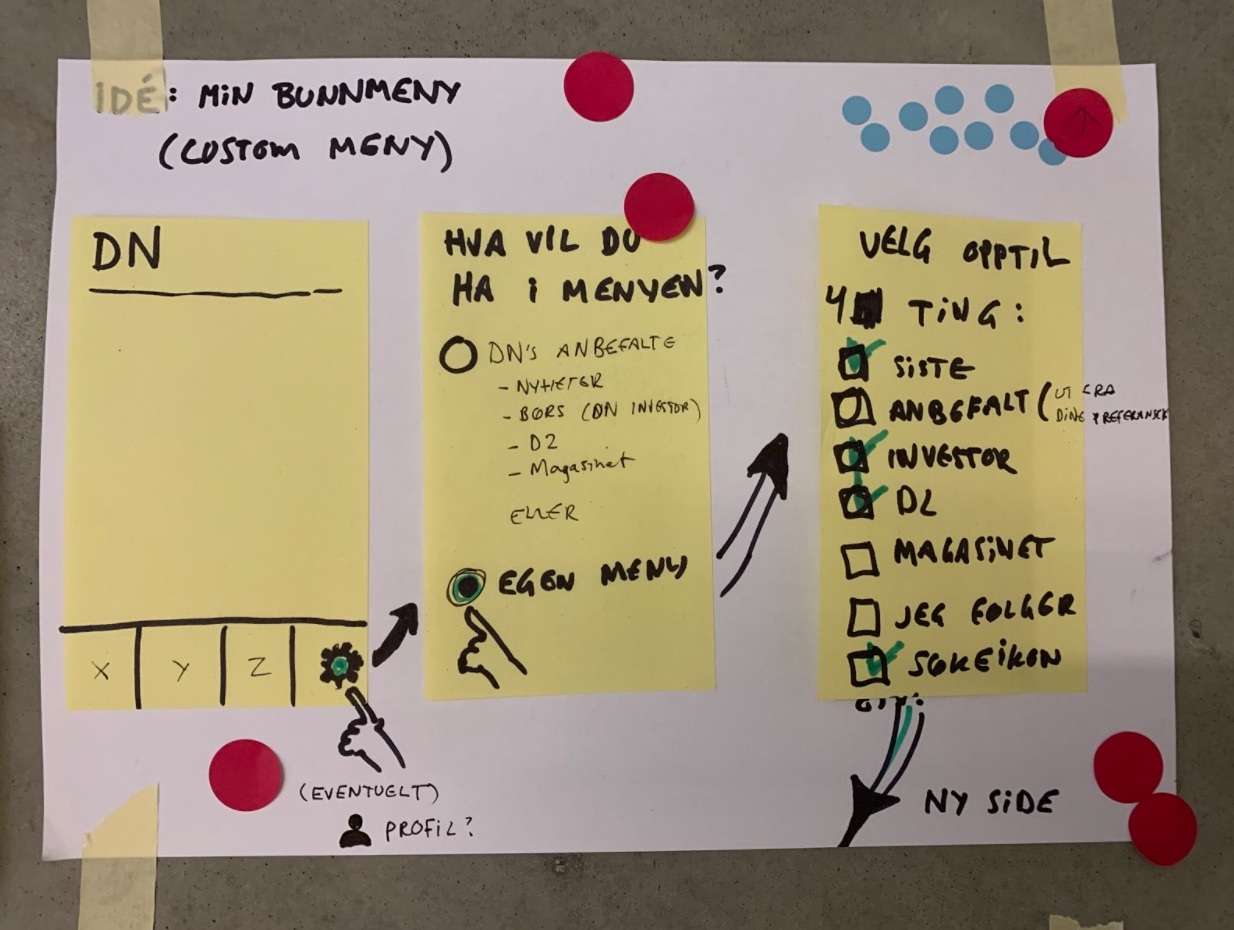 IDÉ: MIN BUNNMENY
(CUSTOM MENY)
DN
X Y Z
(EVENTUELT)
PROFIL?
HVA VIL DU
HA I MENYEN?
DN'S ANBEFALTE
- NYHETER
- BØRS (DN INVESTOR)
- D2
- Magasinet
ELLER
EGEN MENY
VELG OPPTIL
4 TING:
SISTE
ANBEFALT (UT FRA
DINE PREFERANSER
INVESTOR
D2
MAGASINET
JEG FØLGER
SØKEIKON
NY SIDE